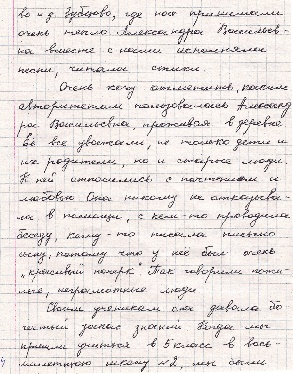 во и д. Зубцово, где нас принимали
очень тепло. Александра Василь­ев-
на вместе с нами исполняла
песни, читала стихи.
Очень хочу отметить, каким
авторитетом пользовалась Александ
ра Васильевна, проживая в деревне
Её все уважали, не только дети и
их родители, но и старые люди.
К ней относились с почтением и
любовью. Она никому не отказыва-
ла в помощи, с кем-то проводила
беседу, кому-то писала письмо
сыну, потому что у неё был очень
"красивый почерк". Так говорили пожи-
лые, неграмотные люди.
Своим ученикам она давала бо
гатый запас знаний. Когда мы
пришли учиться в 5 класс в вось-
милетнюю школу №2, мы были